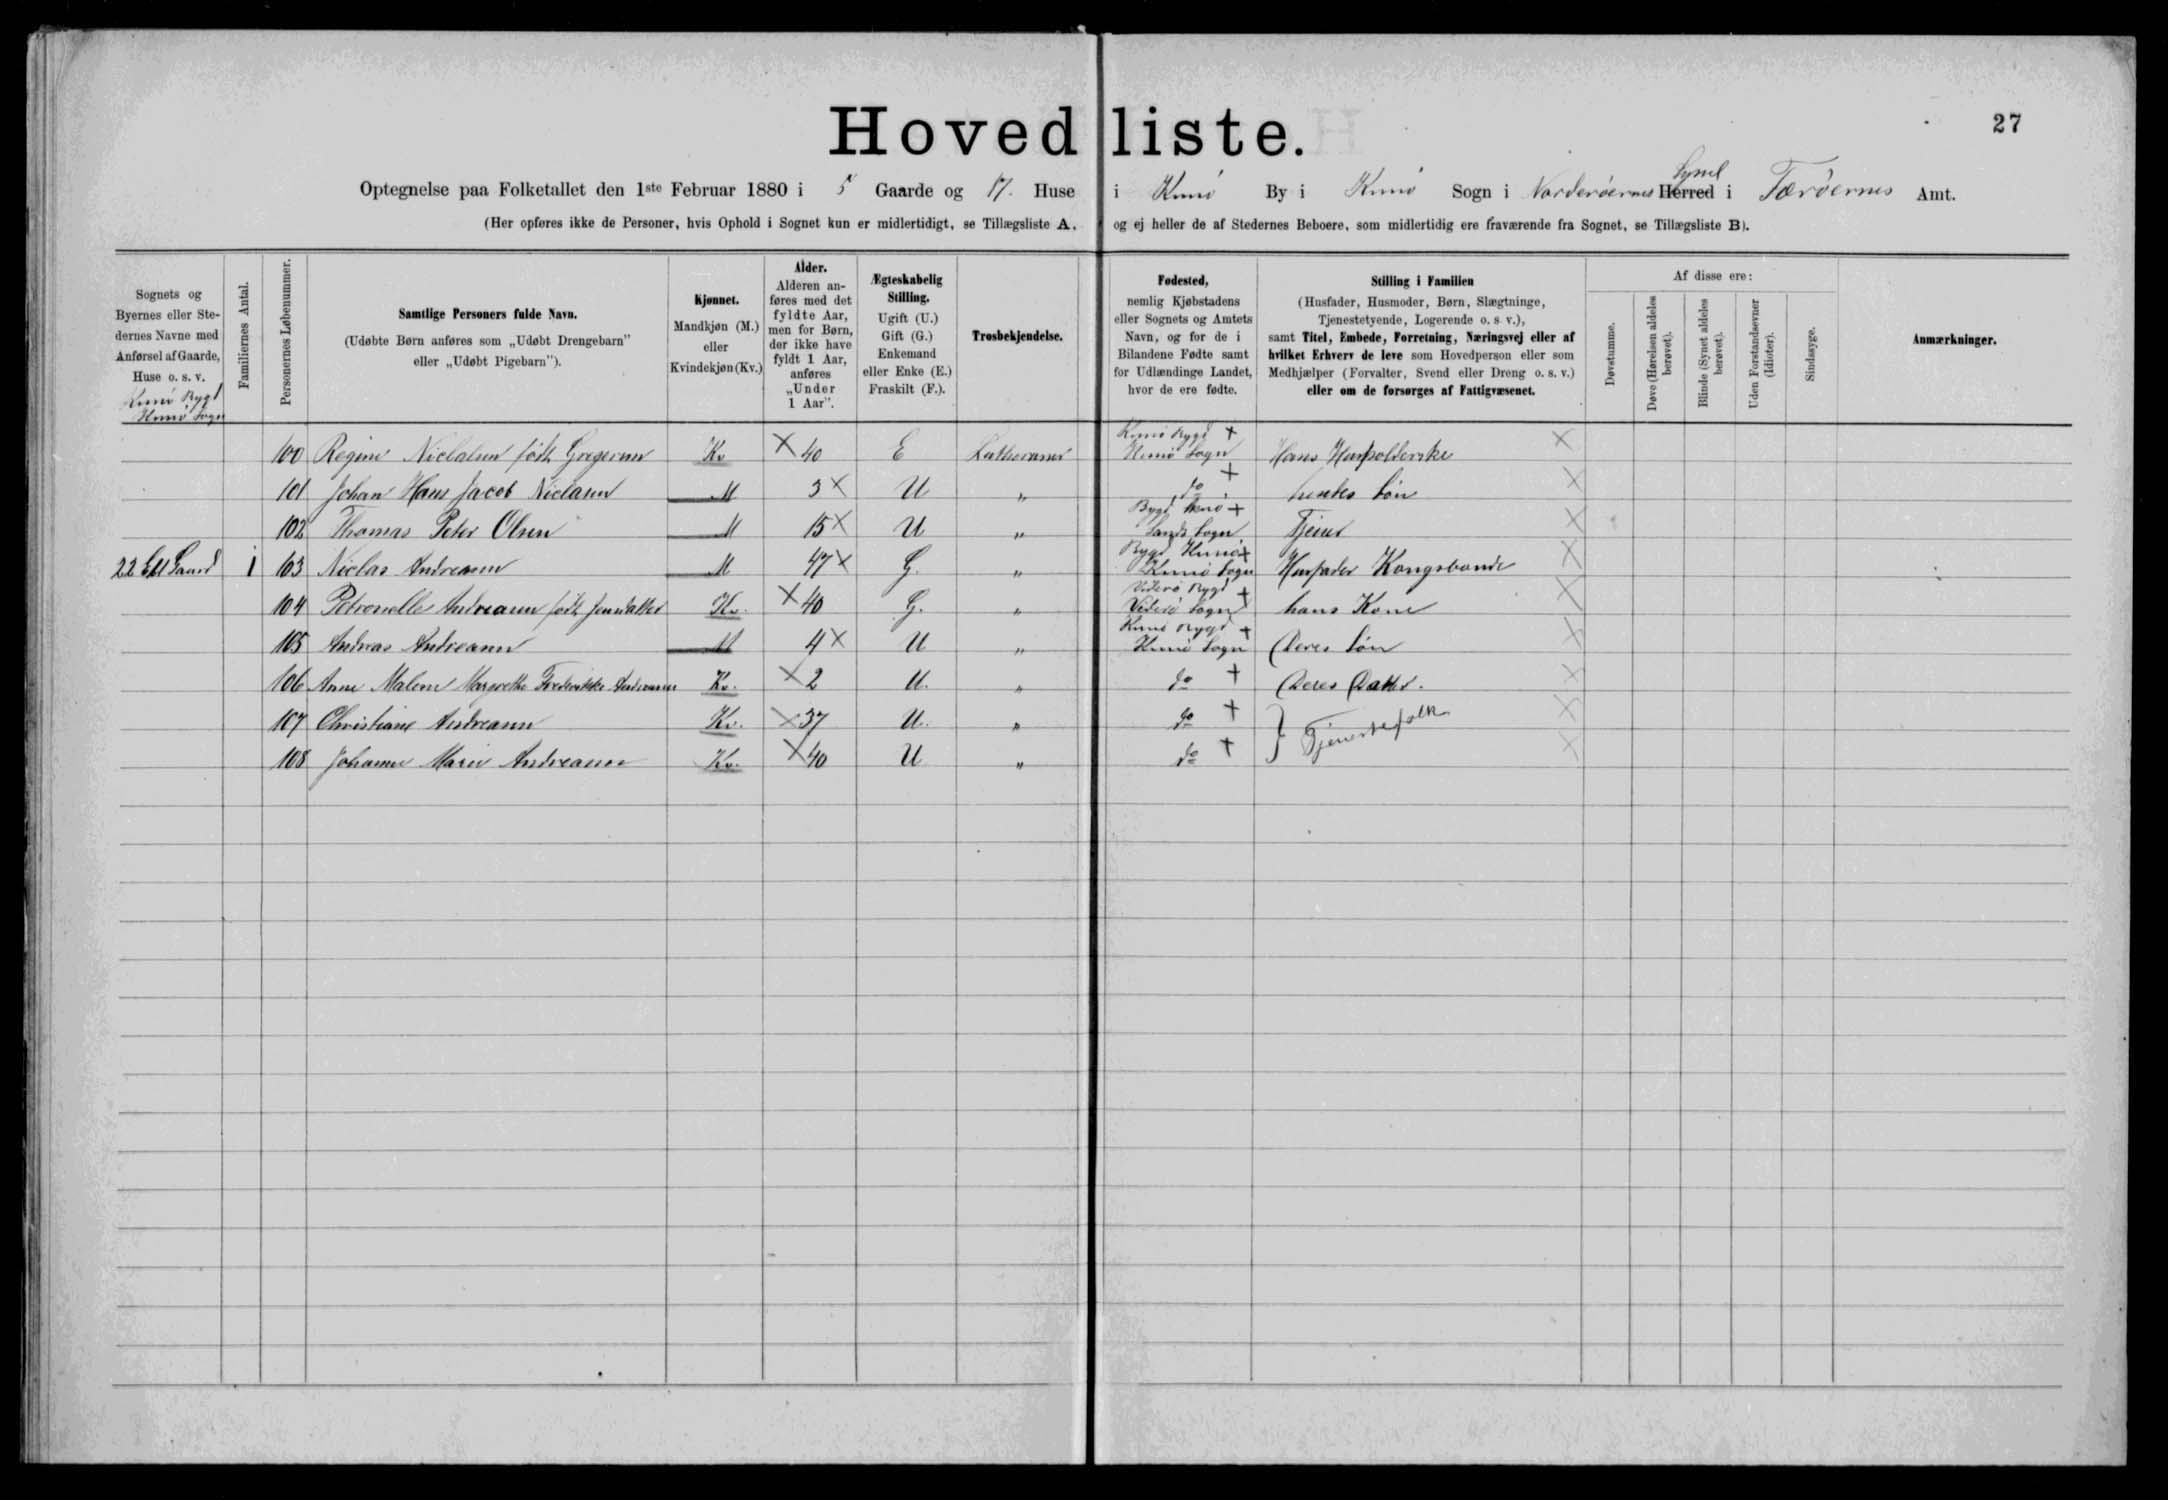 27
Hovedliste.
Optegnelse paa Folketallet den 1ste Februar 1880 i 5 Gaarde og 17. Huse i Kunø By i Kunø Sogn i Norderøernes Herred Syssel i Færöernes Amt.
(Her opføres ikke de Personer, hvis Ophold i Sognet kun er midlertidigt, se Tillægsliste A, og ej heller de af Stedernes Beboere, som midlertidig ere fraværende fra Sognet, se Tillægsliste B).
Sognets og Byernes eller Stedernes Navne med Anførsel af Gaarde, Huse o. s. v.
Familiernes Antal.
Personernes Løbenummer.
Samtlige Personers fulde Navn.
(Udøbte Børn anføres som „Udøbt Drengebarn” eller „Udøbt Pigebarn”).
Kjønnet.
Mandkjøn (M.) eller Kvindekjøn (Kv.)
Alder.
Alderen anføres med det fyldte Aar, men for Børn, der ikke have fyldt 1 Aar, anføres „Under 1 Aar”.
Ægteskabelig Stilling.
Ugift (U.) Gift (G.) Enkemand eller Enke (E.) Fraskilt (F.).
Trosbekjendelse.
Fødested,
nemlig Kjøbstadens eller Sognets og Amtets Navn, og for de i Bilandene Fødte samt for Udlændinge Landet, hvor de ere fødte.
Stilling i Familien
(Husfader, Husmoder, Børn, Slægtninge, Tjenestetyende, Logerende o. s. v.),
samt Titel, Embede, Forretning, Næringsvej eller af hvilket Erhverv de leve som Hovedperson eller som Medhjælper (Forvalter, Svend eller Dreng o. s. v.) eller om de forsørges af Fattigvæsenet.
Af disse ere:
Døvstumme.
Døve (Hørelsen aldeles berøvet).
Blinde (Synet aldeles berøvet).
Uden Forstandsevner (Idioter).
Sindssyge.
Anmærkninger.
Kunø Bygd
Kunø Sogn
100 Regine Niclasen født Gregersen Kv × 40 E Lutheraner Kunø Bygd + Kunø Sogn Hans Husholderske ×
101 Johan Hans Jacob Niclasen M 3 × U „ do + hendes Søn ×
102 Thomas Peter Olsen M 15 × U „ Bygd + Sands Sogn Tjener ×
22 Ett Gaard 1 103 Niclas Andreasen M 47 × G. „ Bygd Kunø + Kunø Sogn Husfader Kongsbonde ×
104 Petronelle Andreasen født Kv. × 40 G. „ Viderø Bygd + Viderø Sogn hans Kone ×
105 Andreas Andreasen M 4 × U „ Kunø Bygd + Kunø Sogn Deres Søn ×
106 Anne Malene Margrethe Frederikke Andreasen Kv. × 2 U. „ do + Deres Datter. ×
107 Christiane Andreasen Kv. × 37 U. „ do + } Tjenestefolk ×
108 Johanne Marie Andreasen Kv. × 40 U „ do + ×